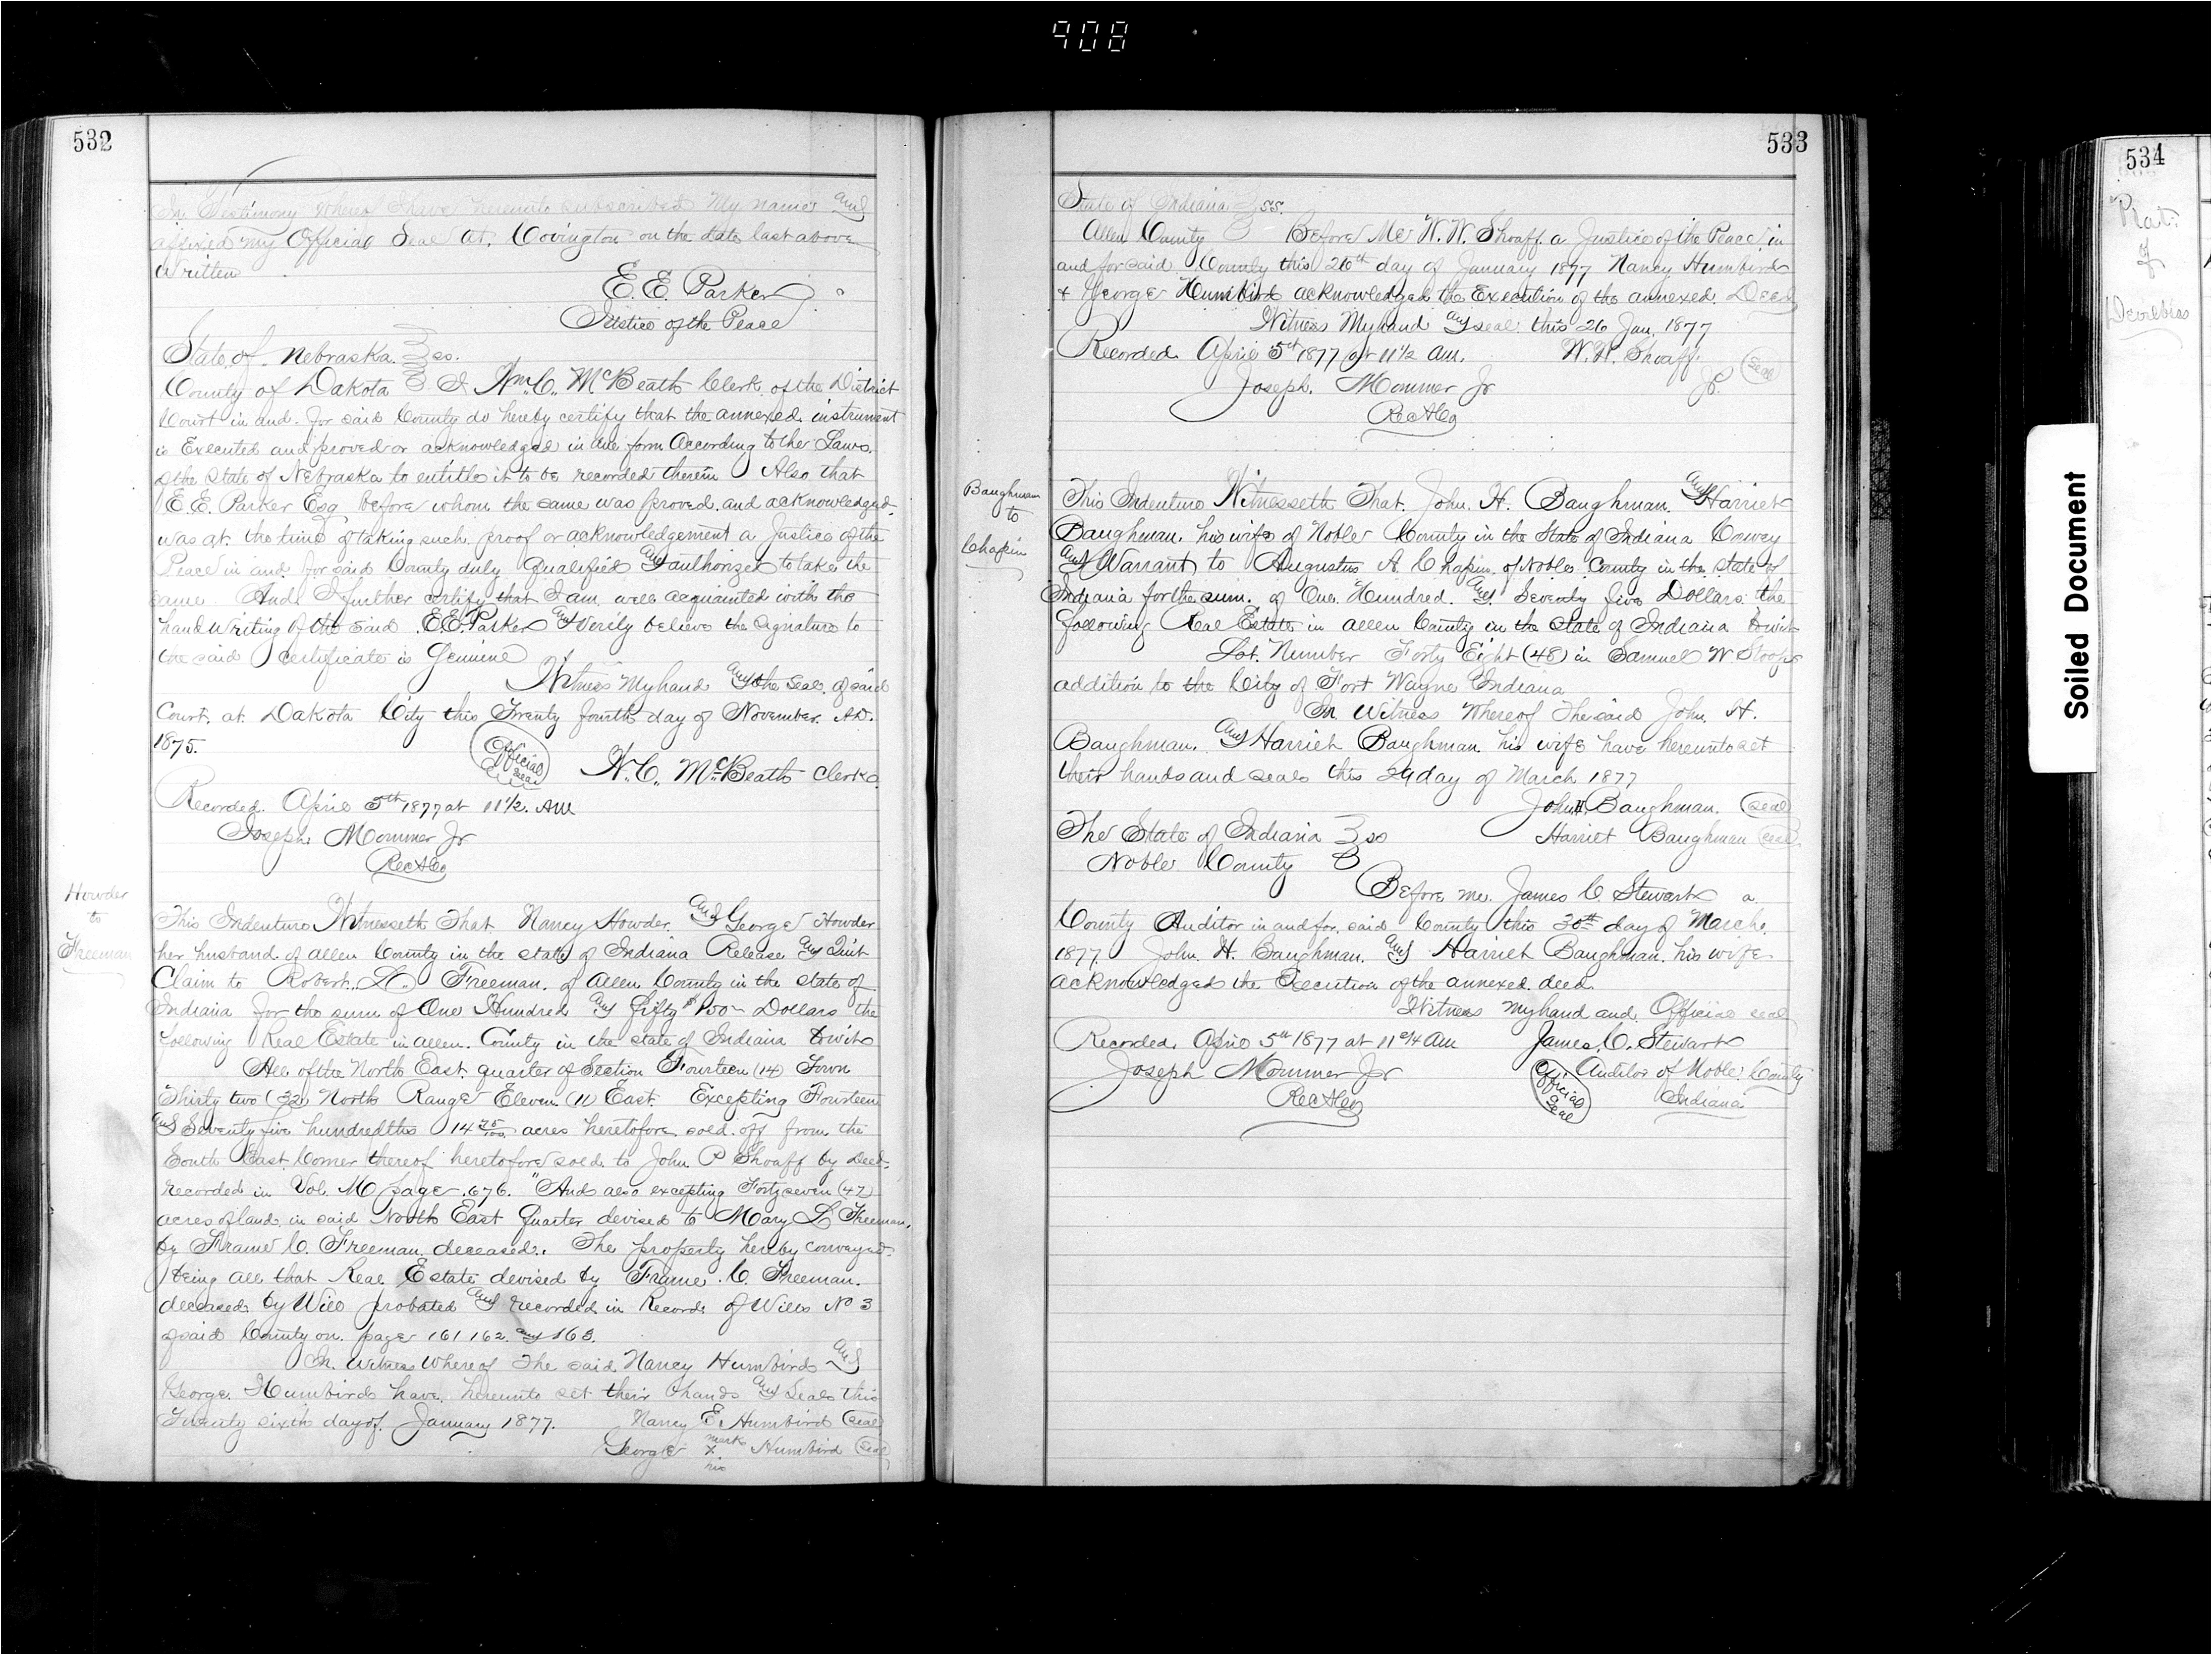 908
532
In Testimony Whereof I have hereunto subscribed My name and
affixed my Official Seal at Covington on the date last above
Written
E. E. Parker
Justice of the Peace
State of Nebraska. } ss.
County of Dakota } I Wm. C. McBeath Clerk of the District
Court in and for said County do hereby certify that the annexed instrument
is Executed and proved or acknowledged in due form According to the Laws
of the State of Nebraska to entitle it to be recorded therein Also that
E. E. Parker Esq before whom the same was proved and acknowledged
was at the time of taking such proof or acknowledgement a Justice of the
Peace in and for said County duly qualified and authorized to take the
same And I further certify that I am well acquainted with the
hand writing of the said E. E. Parker and Verily believe the signature to
the said certificate is Genuine
Witness My hand and the Seal of said
Court at Dakota City this Twenty fourth day of November A.D.
1875.
Official Seal
W. C. McBeath Clerk
Recorded April 5th 1877 at 11 1/2 AM
Joseph Mommer Jr
Rec A Co
Howder
to
Freeman
This Indenture Witnesseth That Nancy Howder and George Howder
her husband of Allen County in the state of Indiana Release and Quit
Claim to Robert Freeman of Allen County in the state of
Indiana for the sum of One Hundred and Fifty Dollars the
following Real Estate in Allen County in the state of Indiana towit
All of the North East quarter of Section Fourteen (14) Town
Thirty two (32) North Range Eleven (11) East Excepting Fourteen
and Seventy five hundredths 14 75/100 acres heretofore sold off from the
South East Corner thereof heretofore sold to John P Shoaff by Deed
recorded in Vol. M page 676. "And also excepting Forty seven (47)
acres of land in said North East Quarter devised to Mary L Freeman
by Frame C. Freeman deceased. The property hereby conveyed
being all that Real Estate devised by Frame C. Freeman
deceased by Will probated and recorded in Records of Wills No 3
of said County on page 161 162 and 163.
In Witness Whereof The said Nancy Humbird and
George Humbird have hereunto set their hands and Seals this
Twenty sixth day of January 1877. Nancy E. Humbird (seal)
George x mark his Humbird (seal)
533
State of Indiana } ss.
Allen County } Before Me W. W. Shoaff a Justice of the Peace in
and for said County this 26th day of January 1877 Nancy Humbird
+ George Humbird acknowledged the Execution of the annexed Deed
Witness My hand and seal this 26 Jan. 1877
Recorded April 5th 1877 at 11 1/2 AM. W. W. Shoaff (seal)
Joseph Mommer Jr J.P.
Rec A Co
Baughman
to
Chapin
This Indenture Witnesseth That John H. Baughman and Harriet
Baughman his wife of Noble County in the State of Indiana Convey
and Warrant to Augustus A. Chapin of Noble County in the state of
Indiana for the sum of One Hundred and Seventy five Dollars the
following Real Estate in Allen County in the State of Indiana towit
Lot Number Forty Eight (48) in Samuel W Stoops
addition to the City of Fort Wayne Indiana
In Witness Whereof The said John H.
Baughman and Harriet Baughman his wife have hereunto set
their hands and seals this 29 day of March 1877
John H. Baughman (seal)
The State of Indiana } ss Harriet Baughman (seal)
Noble County }
Before me James C Stewart a
County Auditor in and for said County this 30th day of March
1877 John H. Baughman and Harriet Baughman his wife
acknowledged the Execution of the annexed deed
Witness my hand and Official seal
Recorded April 5th 1877 at 11 3/4 AM James C. Stewart
Joseph Mommer Jr Auditor of Noble County
Rec A Co Official Seal Indiana
Soiled Document
534
Plat
of